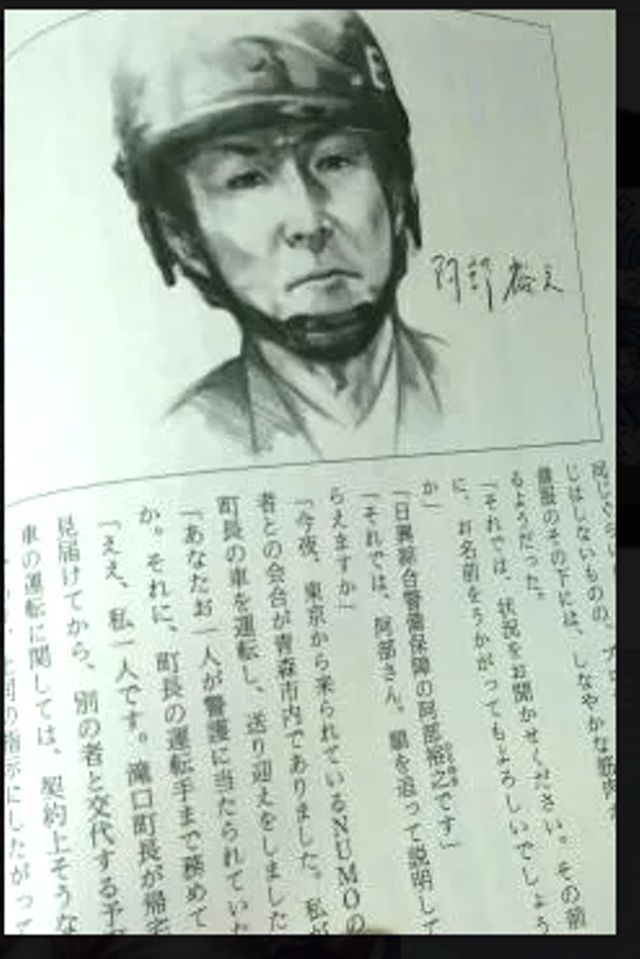 E
阿部 裕之
じはしないものの、プロ
備服のその下には、しなやかな筋肉
るようだった。
「それでは、状況をお聞かせください。その前
に、お名前をうかがってもよろしいでしょう
か」
「日興綜合警備保障の阿部裕之です」
「それでは、阿部さん。順を追って説明して
らえますか」
「今夜、東京から来られているNUMOの
者との会合が青森市内でありました。私が
町長の車を運転し、送り迎えをしました
「あなたお一人が警護に当たられていた
か。それに、町長の運転手まで務めて
「ええ、私一人です。滝口町長が帰宅
見届けてから、別の者と交代する予
車の運転に関しては、契約上そうな
上司の指示にしたがって